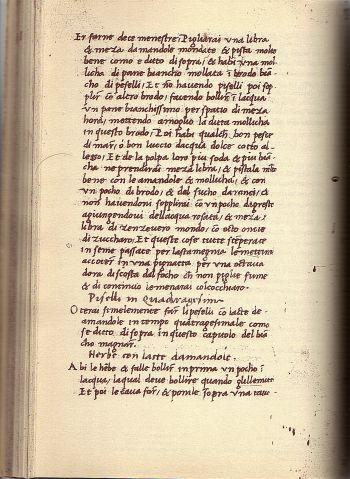 Per farne dece menestre: Pigliarai una libra
& meza damandole mondate & pista molto
bene como e ditto di sopra, & habi una mol
licha di pane biancho mollata i brodo biã
cho di peselli, Et nõ havendo piselli poi sop
plir cõ altro brodo, facendo bollir ĩ lacqua
un pane bianchissimo per spatio di meza
hora, mettendo amoglio la ditta mollicha
in questo brodo, Poi habi qualch. bon pesce
di mar, ó bon luccio dacqua dolce cotto al
lesso, Et de la polpa loro piu soda & piu biã
cha ne prenderai meza libra, & pistala molto
bene con le amandole & mollicha, & con
un pocho di brodo, & dal sucho daranci, &
non havendoni sopplirai cõ un poche dagreste
agiungendovi dellacqua rosata, & meza
libra di zenzevero mondo, cõ otto oncie
di zuccharo, Et queste cose tutte stemperate
insieme passate per la stamegna le mettirai
accocer in una pignatta per una octava
dora discosta dal focho chı̃ non piglie fume
& di continuo le menarai col cocchiaro.
Piselli in Quadragesima
Poterai simelemente far li peselli cõ latte de
amandole in tempo quatragesimale como
se ditto di sopra in questo capitolo del biã
cho magnar.
Herbe con latte damandole.
Habi le hẽbe & falle bollir imprima un pocho ĩ
lacqua, laqual deve bollire quando gliele mett
Et poi le cava for, & ponile sopra una tavo-